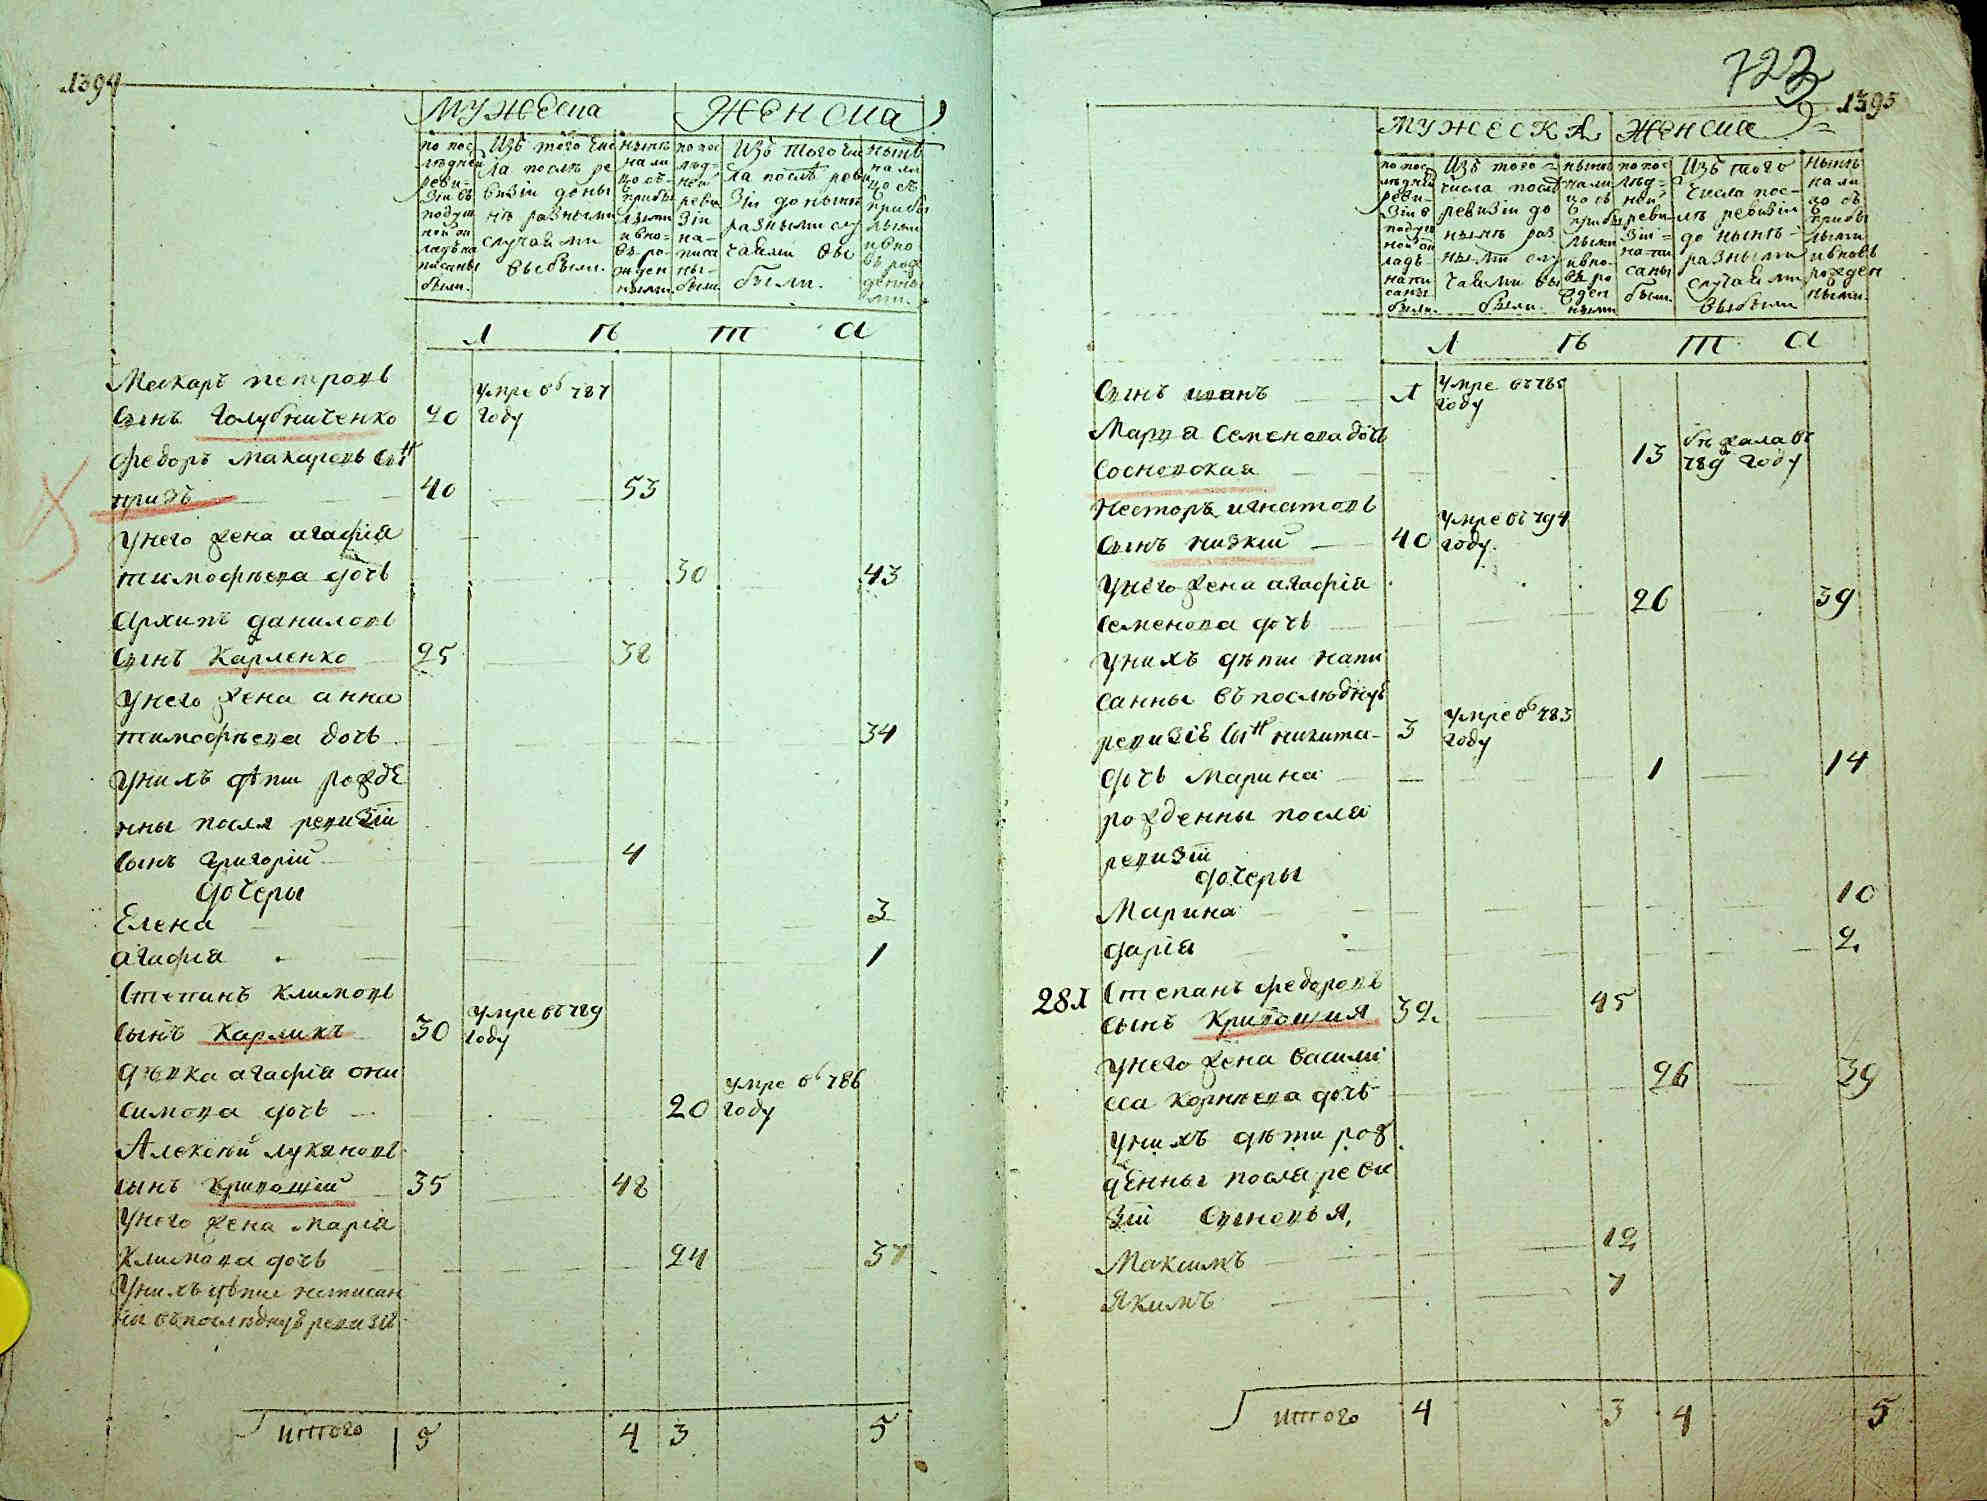 1394
мужеска женска
по пос
лѣдней
реви-
зіи въ
подуш
ной ок
ладъ на
писаны
были.
Изъ того чис
ла послѣ ре
визіи до ны
нѣ разными
случаями
выбыли.
нынѣ
на ли
цо съ
прибы
лыми
и вно-
въ ро-
жден
ными.
по пос
лѣд-
ней
реви
зіи
на-
писа
ны-
были
Изъ того чи
сла послѣ реви
зіи до нынѣ
разными слу
чаями вы
были.
нынѣ
на ли
цо съ
прибы
лыми
и вно
въ рож
денны
ми.
л ѣ т а
Макаръ петровъ
сынъ Голубниченко 70 умре въ 787 году
Федоръ макаровъ сынъ
призъ 40 53
у него жена агафія
тимофѣева дочь 30 43
Архипъ даниловъ
сынъ Карленко 25 38
у него жена анна
тимофѣева дочь 34
у нихъ дѣти рожде
нны посля ревизіи
сынъ григорій 4
дочеры
Елена 3
агафія 1
Степанъ климовъ
сынъ Карликъ 30 умре въ 789 году
дѣвка агафія они
симова дочь 20 умре въ 786 году
Алексѣй лукяновъ
сынъ Кривошіи 35 48
у него жена марія
климова дочь 24 37
у нихъ дѣти написан
ны въ последнуѣ ревизіѣ
итого 5 4 3 5
723
1395
мужеска женска
по пос
лѣдней
реви-
зіи в
подуш
ной ок
ладъ
напи
саны
были.
Изъ того
числа послѣ
ревизіи до
нынѣ раз
ными слу
чаями вы
были.
нынѣ
на ли
цо съ
прибы
лыми
и вно-
въ ро
жден
ными
по пос
лѣд-
ней
реви-
зіи
напи
саны
были.
Изъ того
числа пос-
лѣ ревизіи
до нынѣ
разными
случаями
выбыли
нынѣ
на ли
цо съ
прибы
лыми
и вновь
рожден
ными.
л ѣ т а
Сынъ иванъ 1 умре въ 785 году
Марѳа Семенова дочь
Сосновская 13 бѣжала въ 789 году
Несторъ игнатовъ
сынъ низкіи 40 умре въ 794 году.
у него жена агафія
семенова дочь 26 39
у нихъ дѣти напи
санны въ послѣднуѣ
ревизіѣ сынъ никита 3 умре въ 783 году
дочь Марина 1 14
рожденны посля
ревизіи
дочеры
Марина 10
дарія 2.
281 Степанъ федоровъ
сынъ Кривошия 32. 45
у него жена васили
са корнѣева дочь 26 39
у нихъ дѣти рож
денны посля реви
зіи Сыновья,
Максимъ 12
Якимъ 7
итого 4 3 4 5